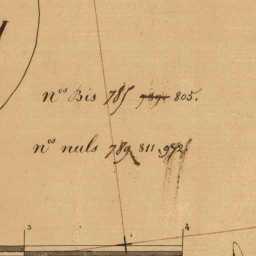 nos Bis 785 805.
nos nuls 789. 811. 972.
3 4